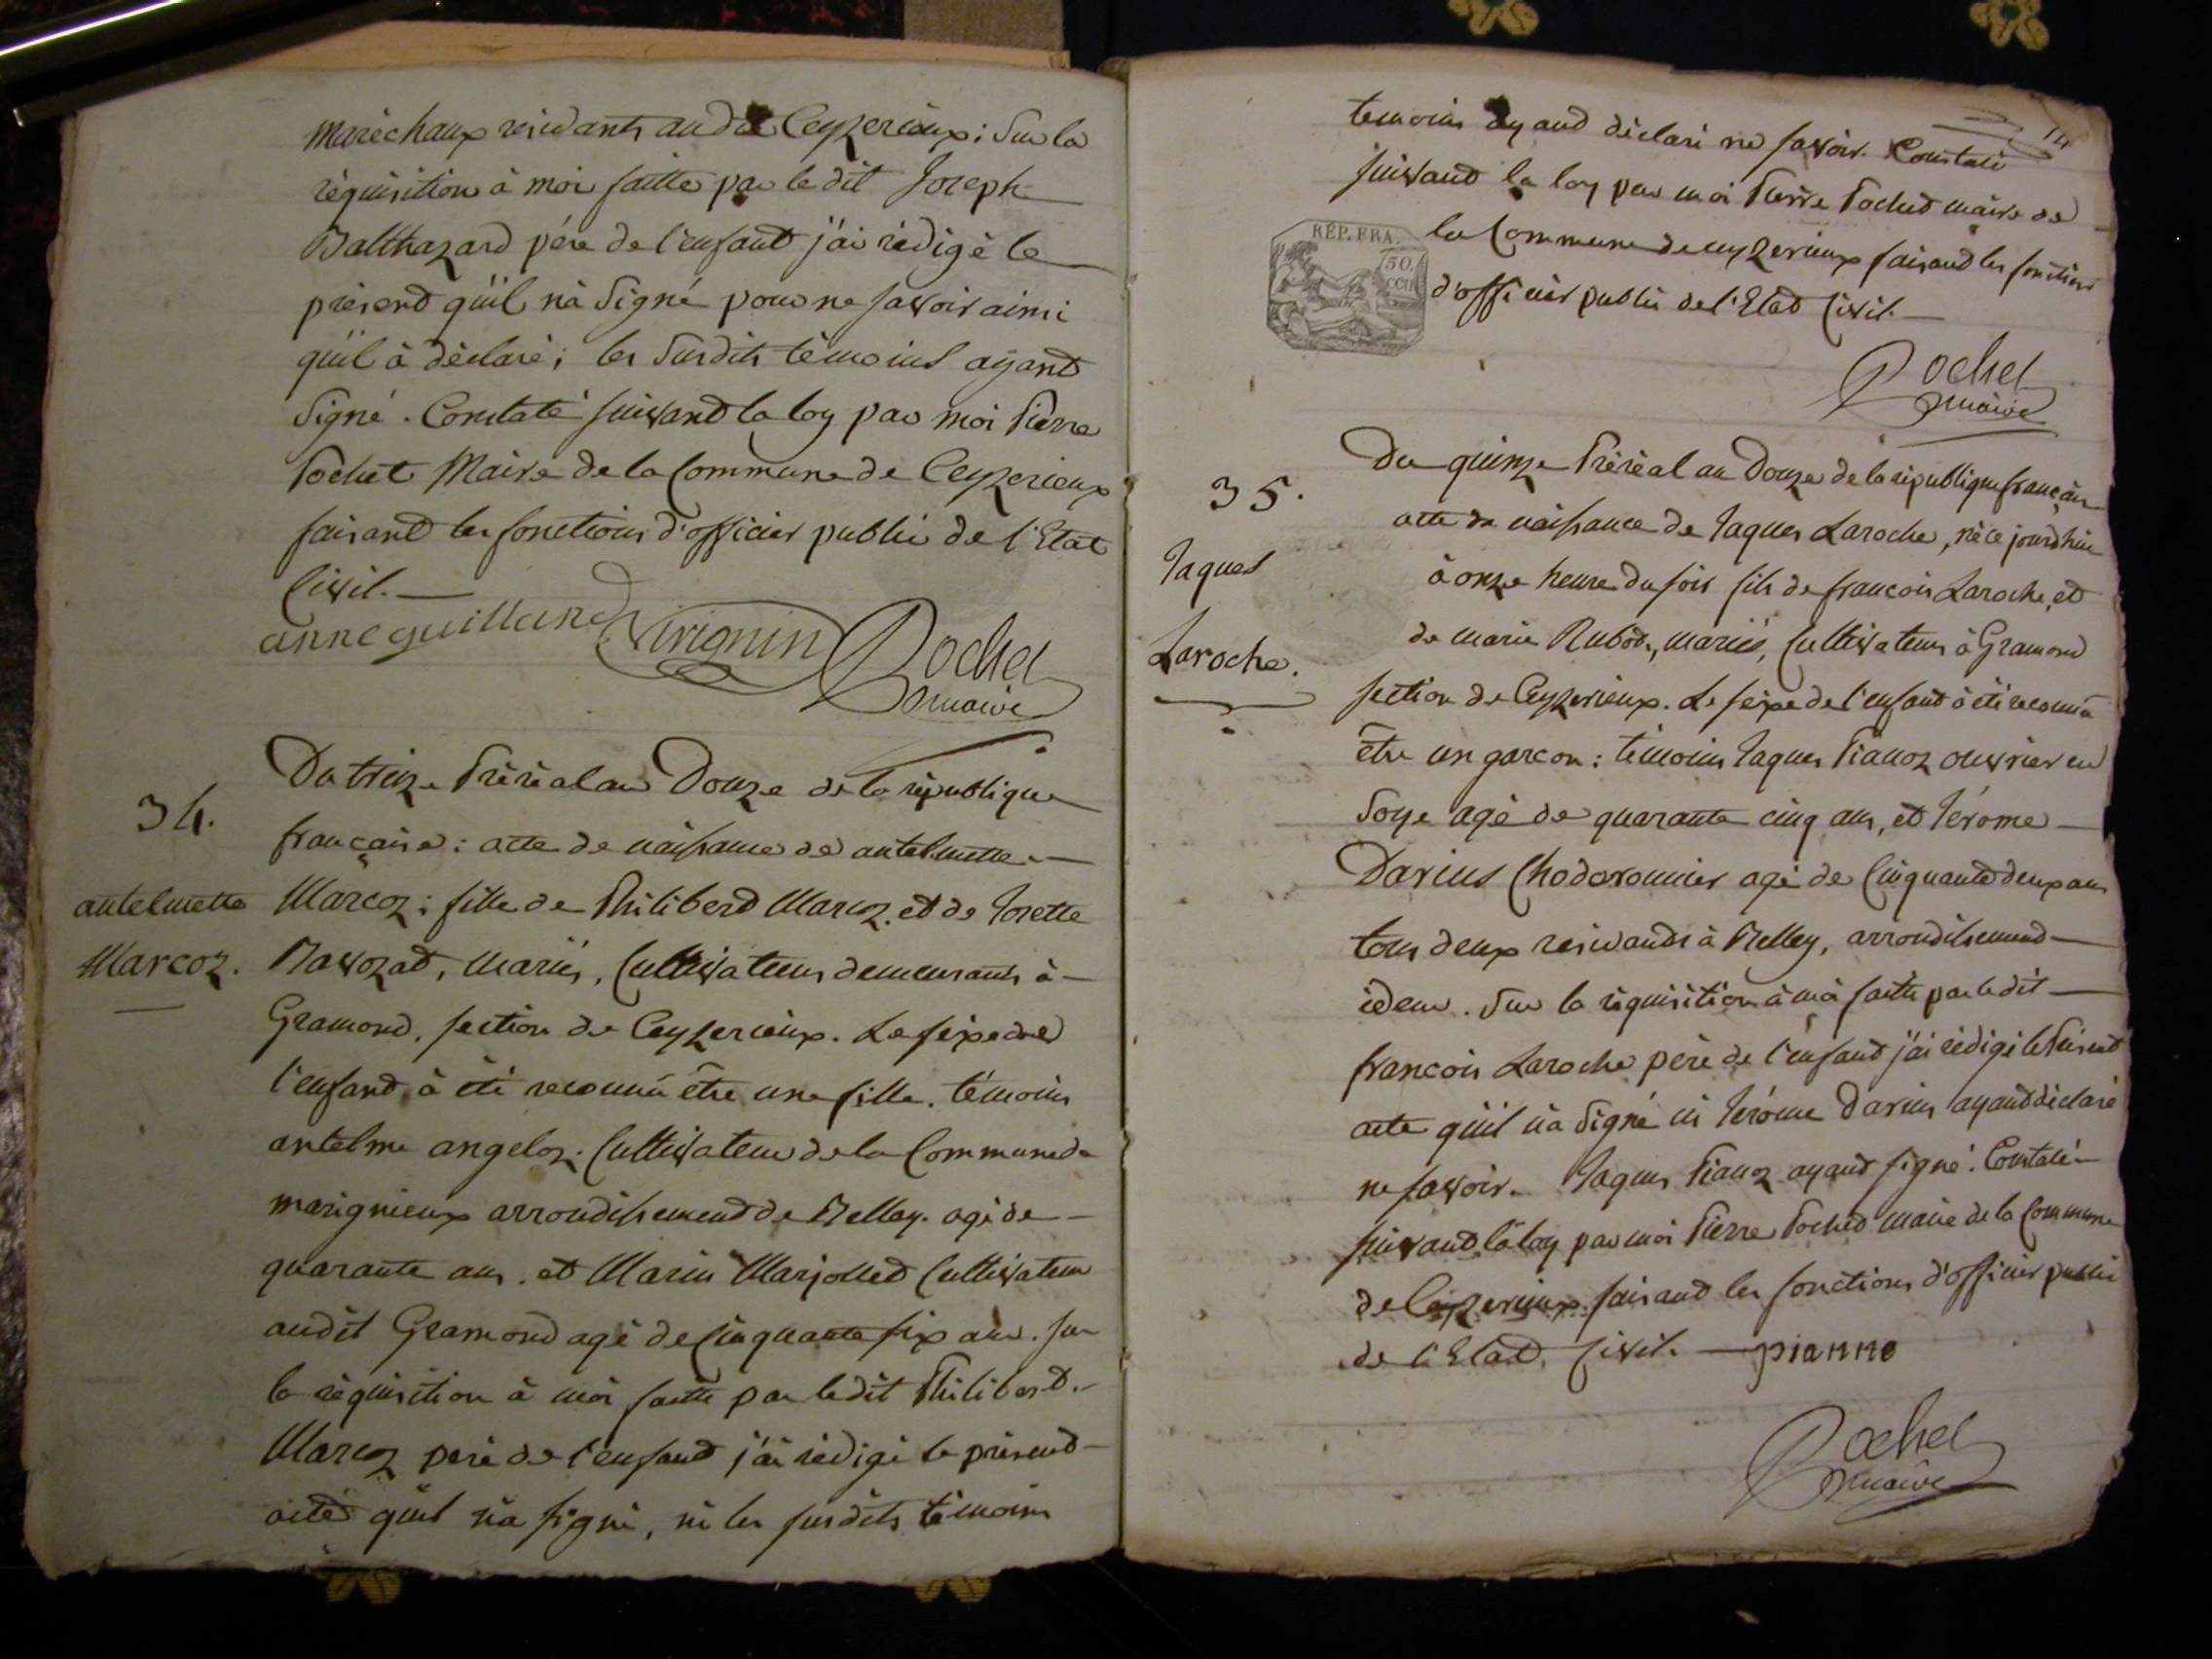 maréchaux residants audit Ceyzerieux; Sur la
réquisition à moi faitte par le dit Joseph
Balthazard père de l'enfant j'ai rédigé le
présend qu'il nà Signé pour ne savoir ainsi
qu'il à déclaré; les Surdits témoins ayant
Signé. Constaté suivand la loy par moi Pierre
Pochet Maire de la Commune de Ceyzerieux
faisand les fonctions d'officier public de l'Etat
Civil.
anne guilland Virignin Pochet
maire
34.
antelmette
Marcoz.
Du treize Préréal an Douze de la république
française: acte de naissance de antelmette
Marcoz; fille de Philiberd Marcoz et de Josette
Ravozad, mariés, Cultivateurs demeurants à
Gramond, section de Ceyzerieux. Le sexe de
l'enfand à été reconnû être une fille. témoins
antelme angeloz Cultivateur de la Commune de
marignieux arrondissement de Belley. agé de
quarante ans. et Marin Marjolled Cultivateur
audit Gramond agé de Cinquante six ans. sur
la réquisition à moi faitte par ledit Philiberd
Marcoz père de l'enfand j'ai rédigé le présend
acte qu'il n'a signé, ni les surdits témoins
14
temoins ayand déclaré ne savoir. Constaté
suivand la loy par moi Pierre Pochet maire de
la Commune de ceyzerieux faisand les fonctions
d'officier public de l'Etad Civil.
RÉP. FRA.
50.
CEN
Pochet
maire
35.
Jaques
Laroche.
Du quinze Préréal an Douze de la république française
acte de naissance de Jaques Laroche, né ce jourdhui
à onze heure du soir fils de françois Laroche, et
de marie Rubod, mariés, Cultivateurs à Gramond
section de Ceyzerieux. Le sexe de l'enfand à été reconnu
être un garçon: témoins Jaques Pianoz ouvrier en
Soye agé de quarante cinq ans, et Jérome
Darius Chodoronnier agé de Cinquante deux ans
tous deux residands à Belley, arrondissement
idem. Sur la réquisition à moi faitte par le dit
françois Laroche père de l'enfand j'ai rédigé le Présend
acte qu'il n'a Signé ni Jérôme Darius ayand déclaré
ne savoir. Jaques Pianoz ayand signé. Constaté
suivand la loy par moi Pierre Pochet maire de la Commune
de Ceyzerieux faisand les fonctions d'officier public
de l'Etad Civil. pianno
Pochet
maire